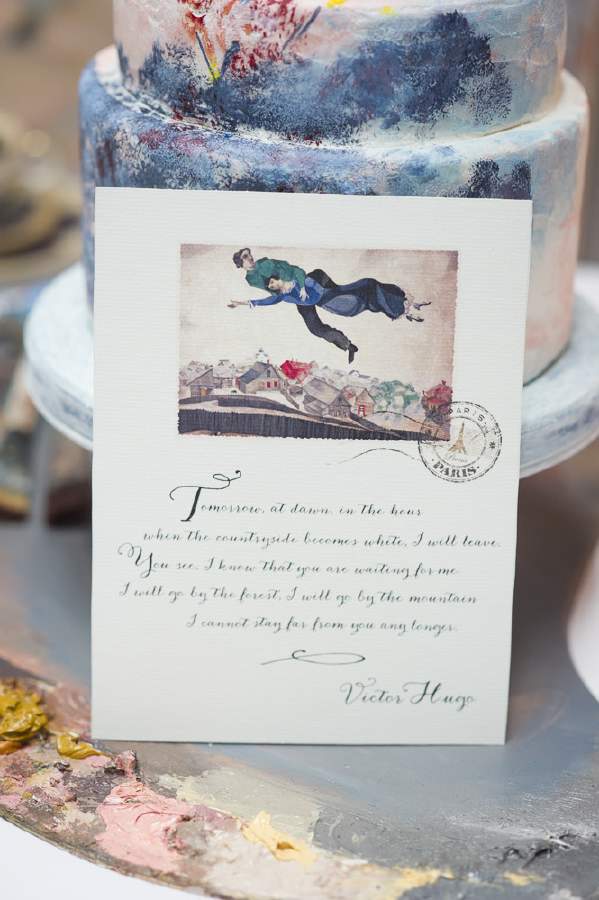 PARIS
PARIS
Tomorrow, at dawn, in the hour
when the countryside becomes white, I will leave.
You see, I know that you are waiting for me.
I will go by the forest, I will go by the mountain
I cannot stay far from you any longer.
Victor Hugo